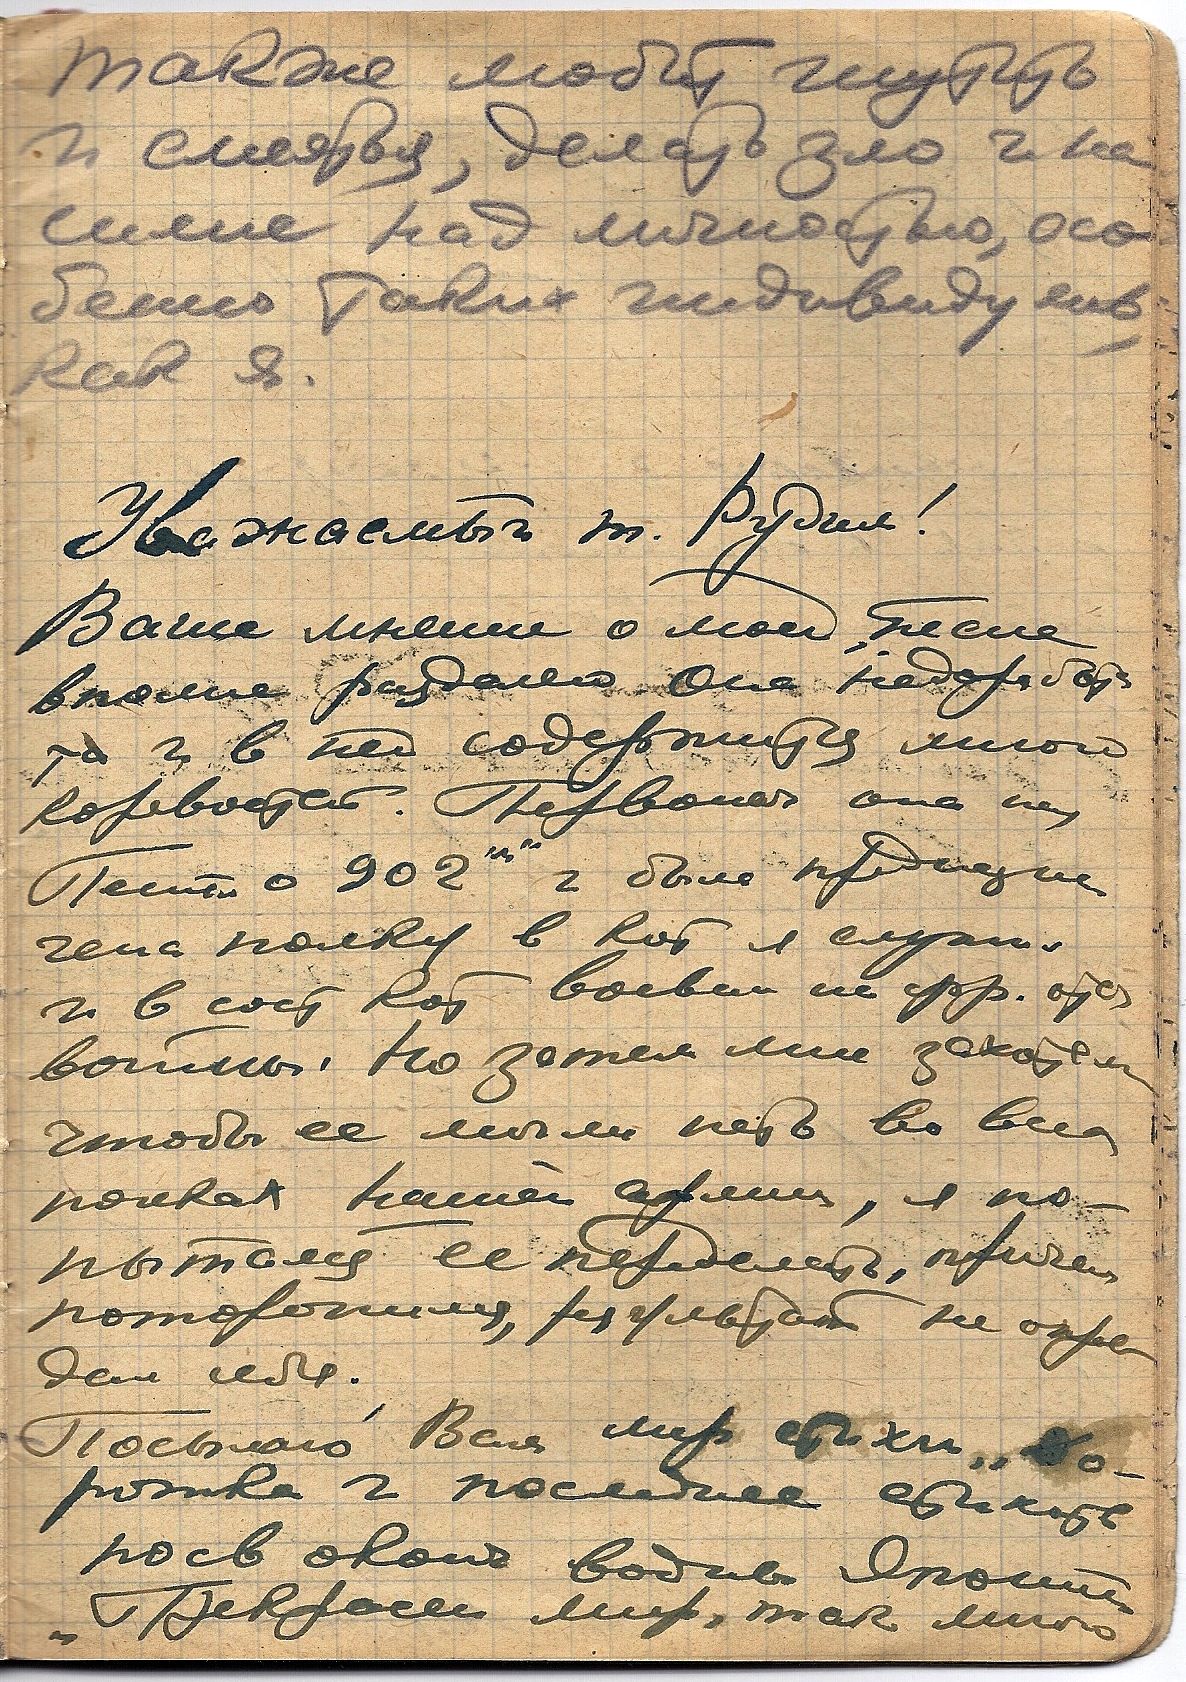 также любит шутить
и смеяться, делать зло и на
силие над личностью, осо
бенно таких индивидуумов
как я.
Уважаемый т. Рудин!
Ваше мнение о моей „песне
вполне Она недоработа
та и в ней содержится много
корявостей. Первонач она наз
Песня о 902 "м" и была предназна
чена полку в кот я служил
и в сост кот воевал на фр. отеч
войны. Но затем мне захотел
чтобы ее могли петь во всех
полках нашей армии, я по-
пытался ее переделать, причем
поторопился, результат не оправ
дал себя.
Посылаю Вам мир стихи „До-
рожка и последнее стихотв
посв оконч войны Японией
„Прекрасен мир, так много